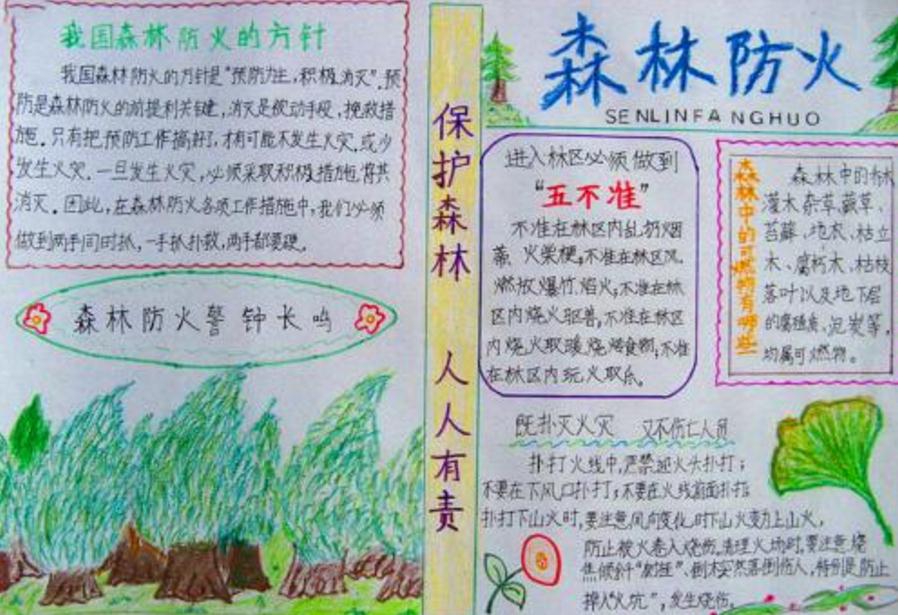 我国森林防火的方针
我国森林防火的方针是“预防为主，积极消灭”。预
防是森林防火的前提和关键，消灭是被动手段，挽救措
施。只有把预防工作搞好了，才有可能不发生火灾或少
发生火灾。一旦发生火灾，必须采取积极措施将其
消灭。因此，在森林防火各项工作措施中，我们必须
做到两手同时抓，一手抓扑救，两手都要硬。
森林防火警钟长鸣
保护森林 人人有责
森林防火
SENLINFANGHUO
进入林区必须做到
“五不准”
不准在林区内乱扔烟
蒂、火柴梗；不准在林区
燃放爆竹、焰火；不准在林
区内烧火驱兽；不准在林区
内烧火取暖烧烤食物；不准
在林区内玩火取乐。
森林中的可燃物有哪些
森林中的
灌木杂草、藏草、
苔藓、地衣、枯立
木、腐朽木、枯枝
落叶以及地下层
的腐殖质、泥炭等，
均属可燃物。
既扑灭火灾 又不伤亡人员
扑打火线中，严禁迎火头扑打；
不要在下风口扑打；不要在火线前面扑打；
扑打下山火时，要注意风向变化，时下山火变为上山火，
防止被火卷入烧伤。清理火场时，要注意烧
焦倾斜“树挂”、倒木突然落倒伤人，特别是防止
掉入“火坑”，发生烧伤。